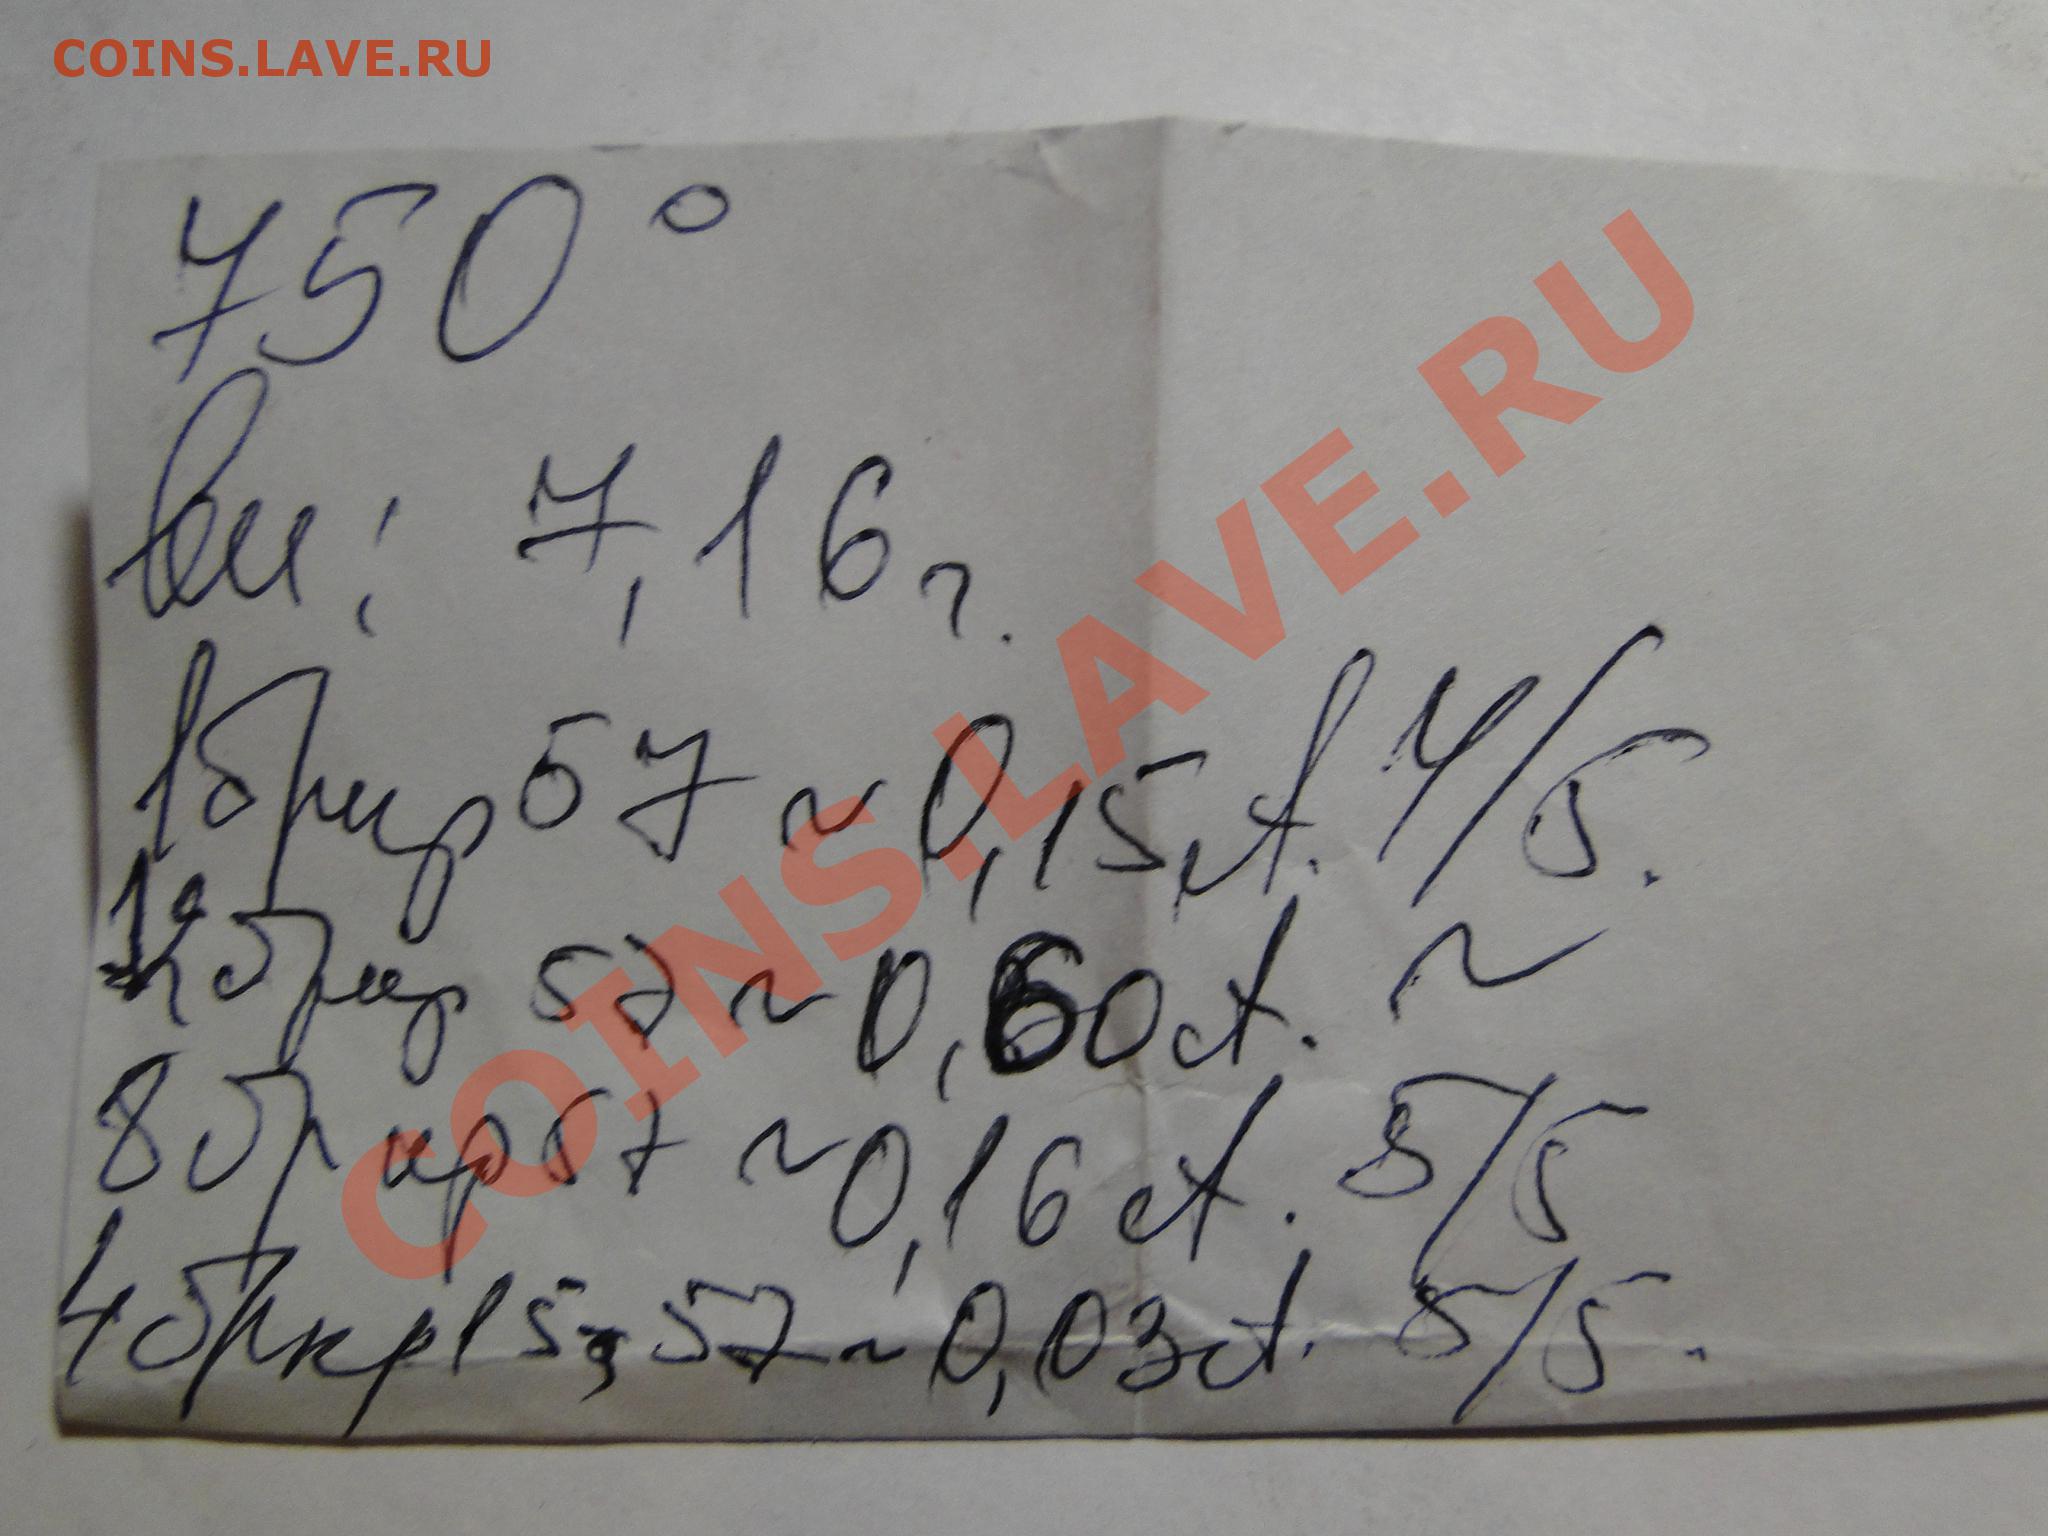 COINS.LAVE.RU
750°
вы: 7,16 г.
1 бр кр 57 ~ 0,15 ct. 4/5.
бр кр 57 ~ 0,60 ct. ~
8 бр кр 57 ~ 0,16 ct. 5/5
4 бр кр 15, 57 ~ 0,03 ct. 5/5.
COINS.LAVE.RU